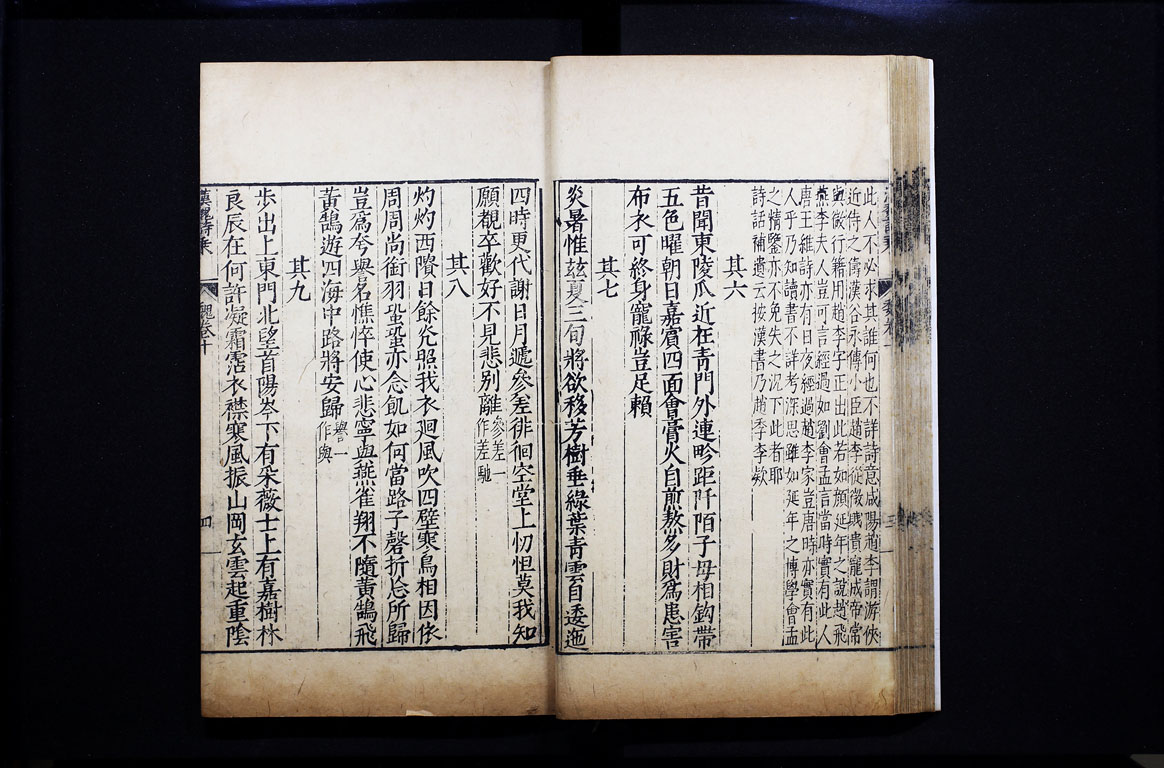 此人不必求其誰何也不詳詩意咸陽趙李謂游俠
近侍之儔漢谷永傳小臣趙李從微賤貴寵成帝常
與微行籍用趙李字正出此若如顏延年之說趙飛
燕李夫人豈可言經過如劉會孟言當時實有此人
唐王維詩亦有日夜經過趙李家豈唐時亦實有此
人乎乃知讀書不詳考深思雖如延年之博學會孟
之精鑒亦不免失之况下此者耶
詩話補遺云按漢書乃趙季李欵
其六
昔聞東陵瓜近在青門外連畛距阡陌子母相鈎帶
五色曜朝日嘉賓四面會膏火自煎熬多財爲患害
布衣可終身寵祿豈足賴
其七
炎暑惟兹夏三旬將欲移芳樹垂綠葉青雲自逶迤
四時更代謝日月遞參差徘徊空堂上忉怛莫我知
願覩卒歡好不見悲别離參差一作差馳
其八
灼灼西隤日餘光照我衣廻風吹四壁寒鳥相因依
周周尚銜羽蛩蛩亦念飢如何當路子磬折忘所歸
豈爲夸與名憔悴使心悲寧與燕雀翔不隨黃鵠飛
黃鵠遊四海中路將安歸譽一作與
其九
步出上東門北望首陽岑下有采薇士上有嘉樹林
良辰在何許凝霜霑衣襟寒風振山岡玄雲起重陰
漢魏詩乘 魏卷十 四